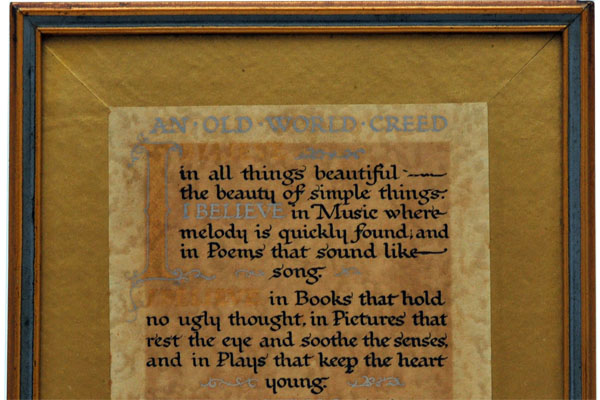 AN·OLD·WORLD·CREED
I
in all things beautiful
the beauty of simple things.
I BELIEVE in Music where
melody is quickly found, and
in Poems that sound like
song.
in Books that hold
no ugly thought, in Pictures that
rest the eye and soothe the senses,
and in Plays that keep the heart
young.